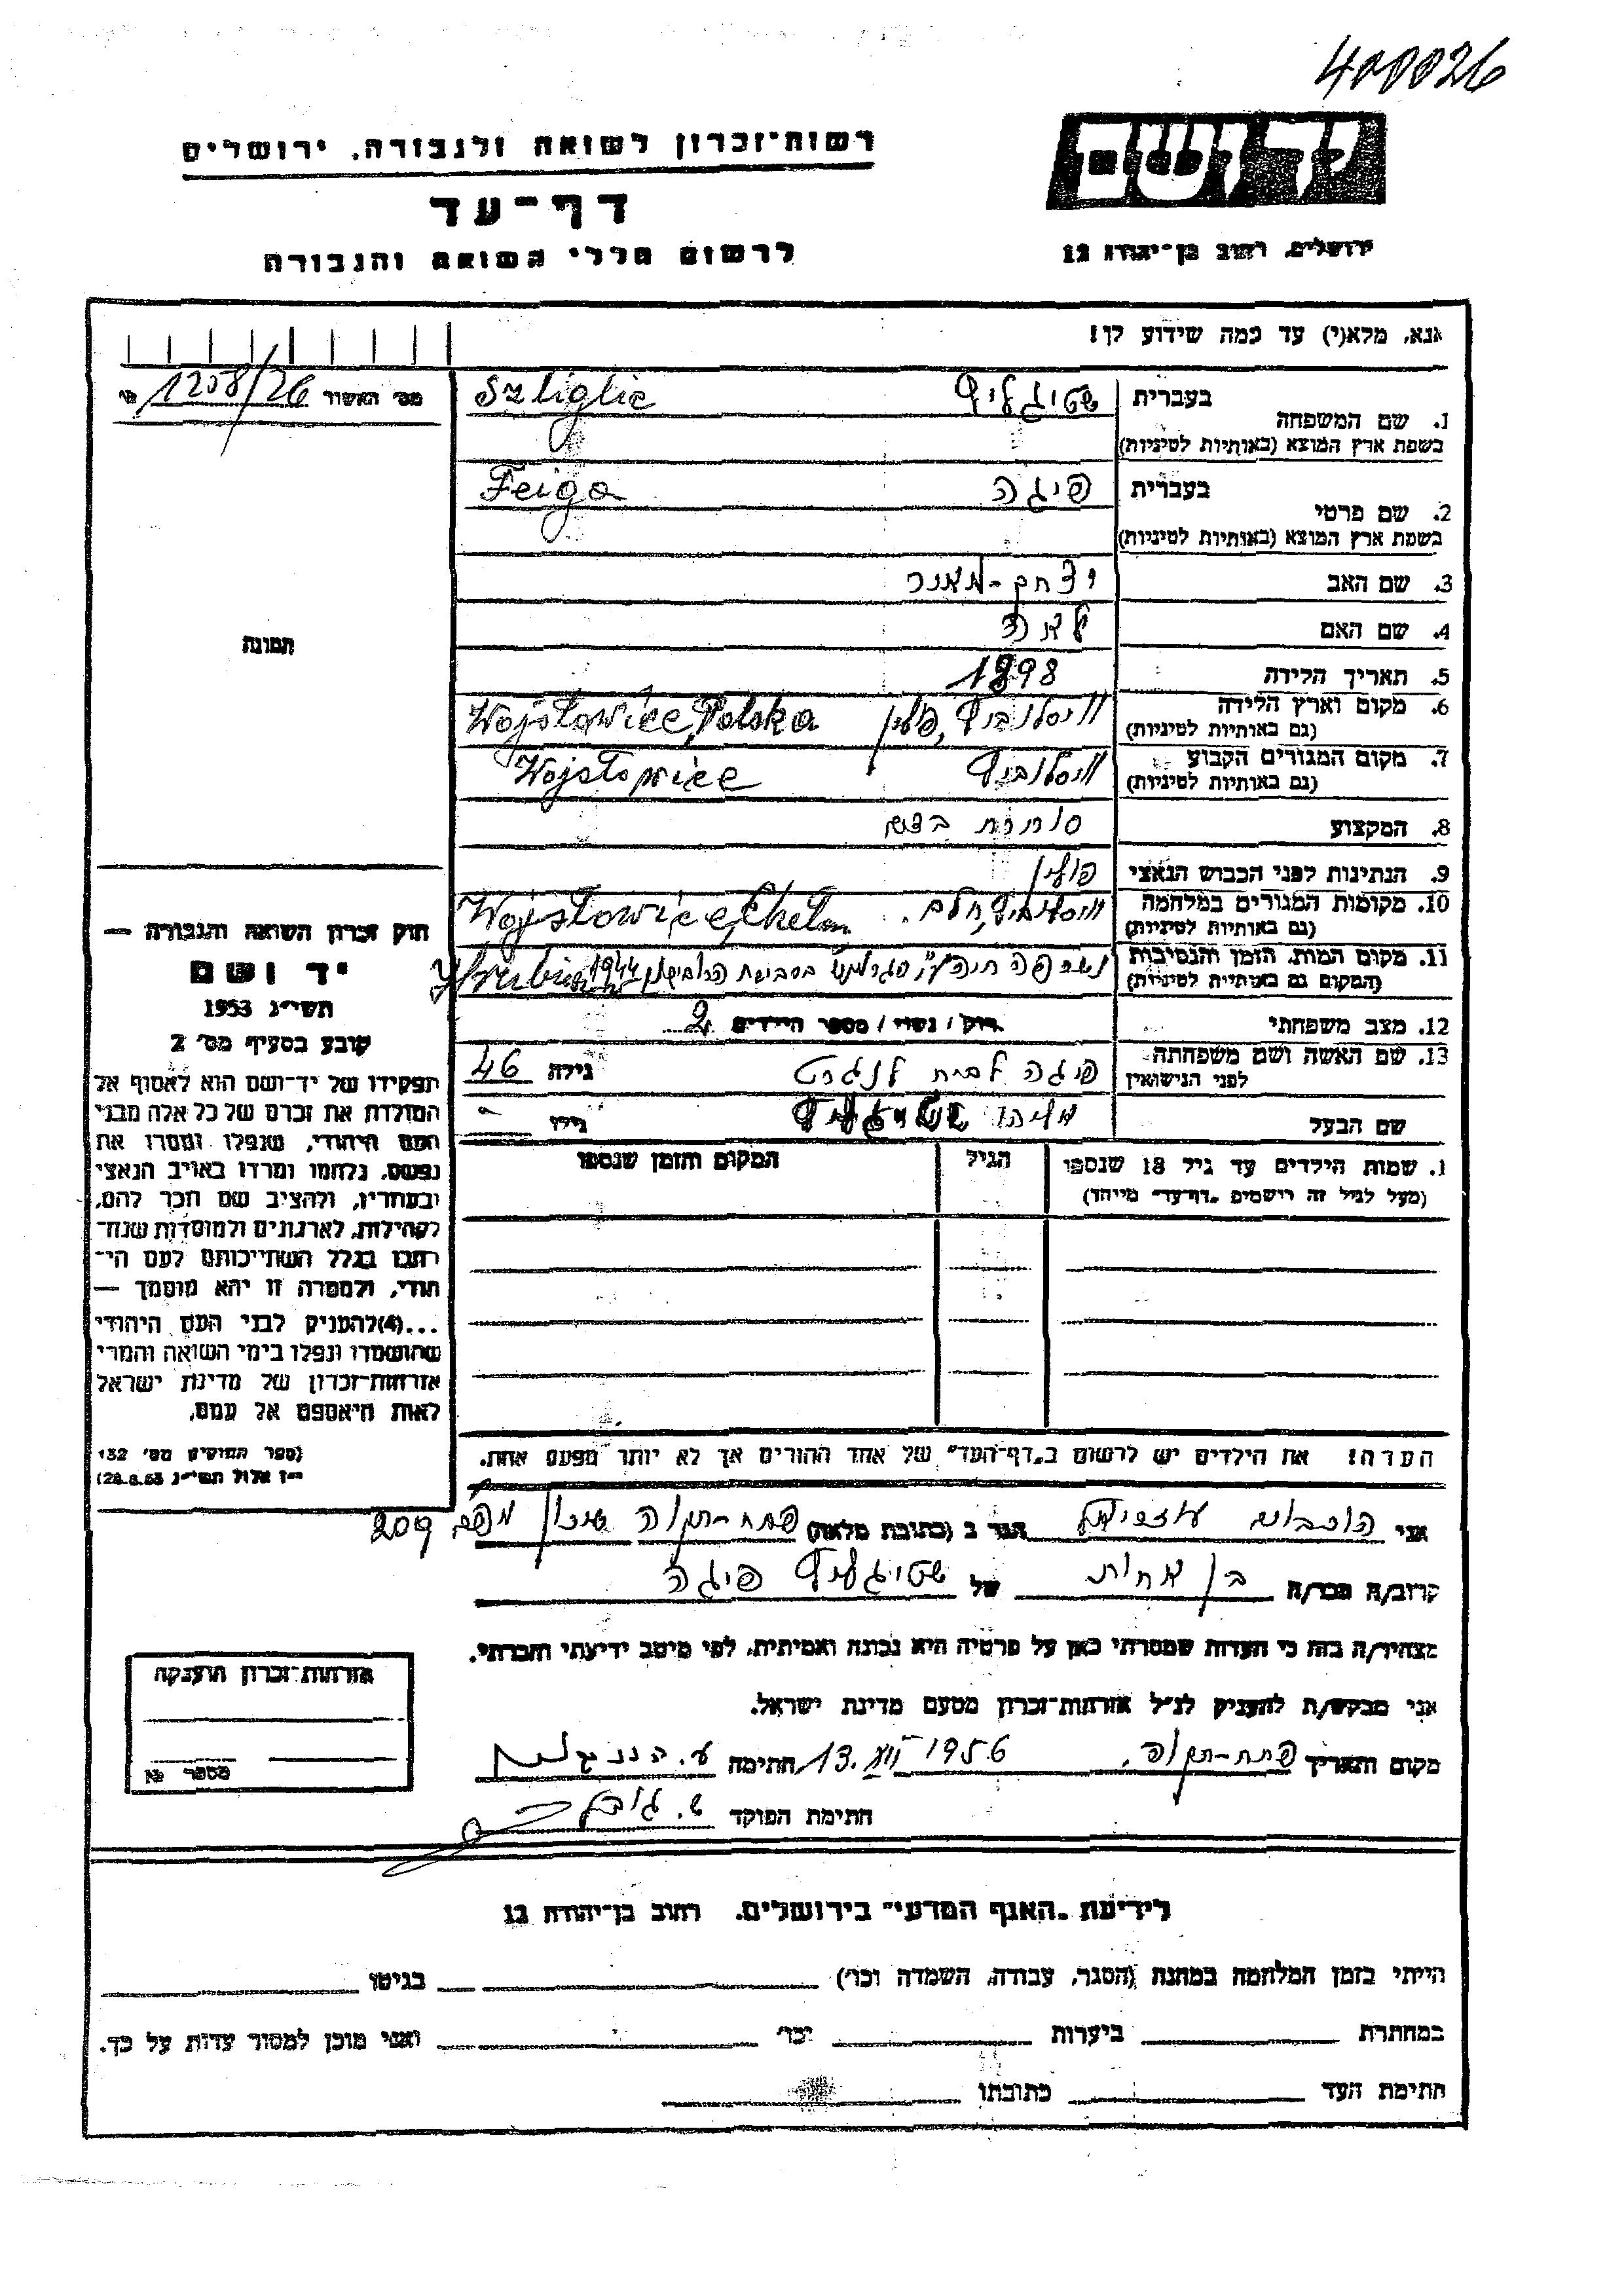 400026
רשות-זכרון לשואה ולגבורה, ירושלים
יד ושם
דף-עד
ירושלים, רחוב בן-יהודה 12
לרשום חללי השואה והגבורה
אנא, מלא(י) עד כמה שידוע לך!
מס' האשור 1258/26 №
1. שם המשפחה
בעברית שטיגליץ Sztiglic
בשפת ארץ המוצא (באותיות לטיניות)
2. שם פרטי
בעברית פיגה Feiga
בשפת ארץ המוצא (באותיות לטיניות)
3. שם האב יצחק-מאיר
4. שם האם לאה
תמונה
5. תאריך הלידה 1898
6. מקום וארץ הלידה
(גם באותיות לטיניות) פולין Wojsławice, Polska
7. מקום המגורים הקבוע
(גם באותיות לטיניות) Wojsławice
8. המקצוע סוחרת
9. הנתינות לפני הכבוש הנאצי פולין
10. מקומות המגורים במלחמה
(גם באותיות לטיניות) Wojsławice, Chełm
11. מקום המות, הזמן והנסיבות
(המקום גם באותיות לטיניות) 1944
12. מצב משפחתי רווק / נשוי / מספר הילדים 2
13. שם האשה ושם משפחתה
לפני הנישואין פיגה לבית גילה 46
שם הבעל שטיגליץ גילו -
1. שמות הילדים עד גיל 18 שנספו
(מעל לגיל זה רישמים "דף-עד" מיוחד)
הגיל
המקום והזמן שנספו
הערה! את הילדים יש לרשום ב"דף-העד" של אחד ההורים אך לא יותר מפעם אחת.
חוק זכרון השואה והגבורה —
יד ושם
תשי"ג 1953
קובע בסעיף מס' 2
תפקידו של יד-ושם הוא לאסוף אל
המולדת את זכרם של כל אלה מבני
העם היהודי, שנפלו ומסרו את
נפשם, נלחמו ומרדו באויב הנאצי
ובעוזריו, ולהציב שם וזכר להם,
לקהילות, לארגונים ולמוסדות שנח-
רבו בגלל השתייכותם לעם הי-
הודי, ולמטרה זו יהא מוסמך —
...(4)להעניק לבני העם היהודי
שהושמדו ונפלו בימי השואה והמרי
אזרחות-זכרון של מדינת ישראל
לאות היאספם אל עמם.
(ספר החוקים מס' 132
י"ז אלול תשי"ג 28.8.53)
אני הגר ב (כתובת מלאה) פתח-תקוה שיכון 209
קרוב/ה מכר/ה בן אחות של שטיגליץ פיגה
מצהיר/ה בזה כי העדות שמסרתי כאן על פרטיה היא נכונה ואמיתית, לפי מיטב ידיעתי והכרתי.
אני מבקש/ת להעניק לנ"ל אזרחות-זכרון מטעם מדינת ישראל.
מקום ותאריך פתח-תקוה, 1956 חתימה
חתימת הפוקד
אזרחות-זכרון הוענקה
מספר №
לידיעת "האגף המדעי" בירושלים, רחוב בן-יהודה 12
הייתי בזמן המלחמה במחנה (הסגר, עבודה, השמדה וכו') בגיטו
במחתרת ביערות וכו' ואני מוכן למסור עדות על כך.
חתימת העד כתובתו